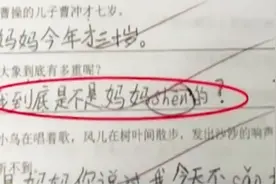 曹操的儿子曹冲才七岁。
妈妈今年才三十岁。
大象到底有多重呢?
我到底是不是妈妈shēn的?
小鸟在唱着歌,风儿在树叶间散步,发出沙沙的响声
听不到
是妈妈你说过我今天不